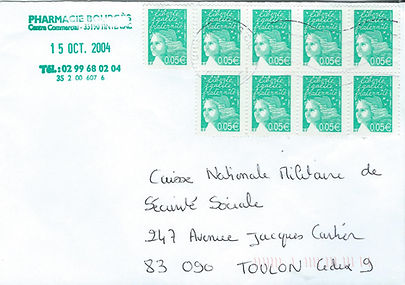 PHARMACIE BOURGÈS
Centre Commercial - 35190 TINTENIAC
15 OCT. 2004
Tél.: 02 99 68 02 04
35 2 00 607 6
Liberté égalité fraternité 0,05€
Liberté égalité fraternité 0,05€
Liberté égalité fraternité 0,05€
Liberté égalité fraternité 0,05€
Liberté égalité fraternité 0,05€
Liberté égalité fraternité 0,05€
Liberté égalité fraternité 0,05€
Liberté égalité fraternité 0,05€
Liberté égalité fraternité 0,05€
Caisse Nationale Militaire de
Sécurité Sociale
247 Avenue Jacques Cartier
83 090 TOULON Cedex 9